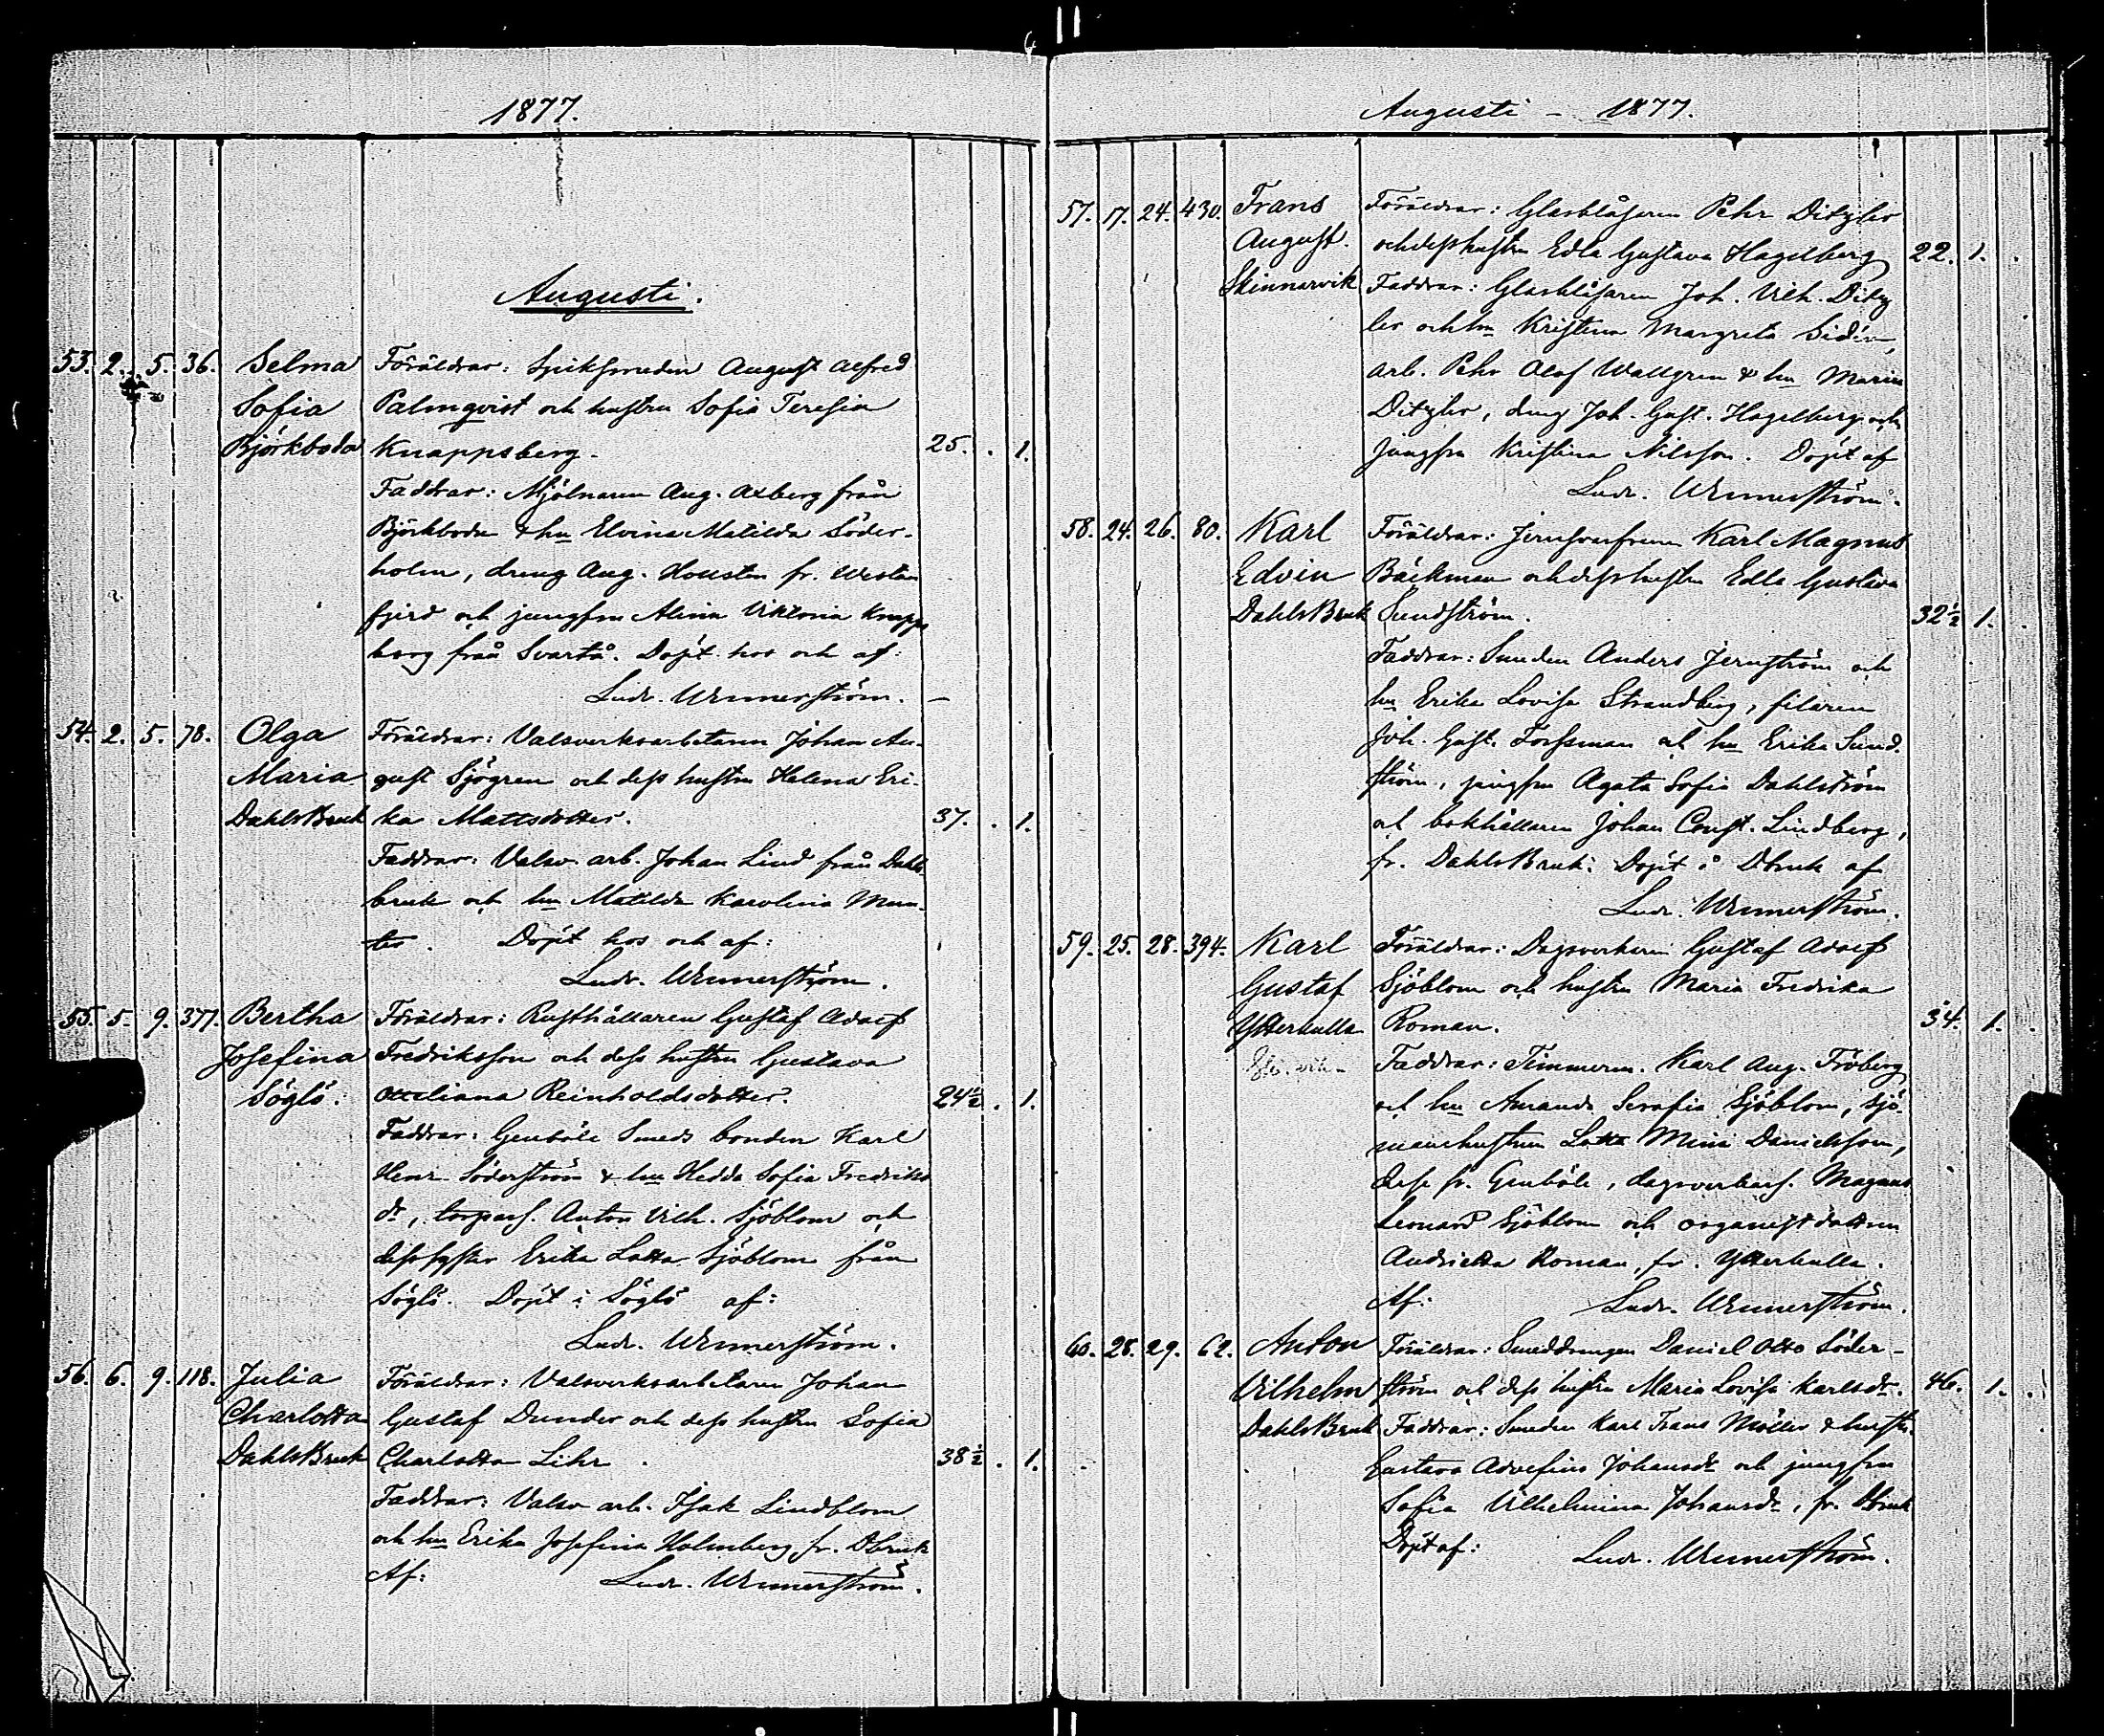 1877.
Augusti.
53. 2. 5. 36. Selma Föräldrar: Spiksmeden August Alfred
Sofia Palmqvist och hustru Sofia Teresia
Björkboda Knappsberg. 25. . 1.
Faddrar: Mjölnaren Aug. Axberg från
Björkboda & hu Elvina Matilda Söder-
holm, dreng Aug. fr. Westan
fjerd och jungfru Alina Viktoria Knapps
berg från Svartå. Döpt hos och af:
Ludv. Wennerström. —
54. 2. 5. 78. Olga Föräldrar: Valsverksarbetaren Johan Au-
Maria gust Sjögren och dess hustru Helena Eri-
DahlsBruk ka Mattsdotter. 37. . 1.
Faddrar: Valsv. arb. Johan Lind från Dahls
bruk och hu Matilda Karolina Mun-
ter. Döpt hos och af:
Ludv. Wennerström.
55. 5. 9. 377. Bertha Föräldrar: Rusthållaren Gustaf Adolf
Josefina Fredriksson och dess hustru Gustava
Söglö. Ottiliana Reinholdsdotter. 24½ . 1.
Faddrar: Genböle Smeds bonden Karl
Henr. Söderström & hu Hedda Sofia Fredriks
dr, torpars. Anton Vilh. Sjöblom och
dess syster Erika Lotta Sjöblom från
Söglö. Döpt i Söglö af:
Ludv. Wennerström.
56. 6. 9. 118. Julia Föräldrar: Valsverksarbetaren Johan
Charlotta Gustaf Dunder och dess hustru Sofia
DahlsBruk Charlotta Lihr. 38½ . 1.
Faddrar: Valsv arb. Isak Lindblom
och hu Erika Josefina Holmberg fr. Dbruk
Af: Ludv. Wennerström.
Augusti – 1877.
57. 17. 24. 430. Frans Föräldrar: Glasblåsaren Pehr Ditzler
August. och dess hustru Edla Gustava Hagelberg 22. 1. .
Skinnarvik Faddrar: Glasblåsaren Joh. Vilh. Ditz
ler och hu Kristina Margreta Sidén,
arb. Pehr Olof Wallgren & hu Maria
Ditzler, dreng Joh. Gust. Hagelberg och
jungfru Kristina Nilsson. Döpt af
Ludv. Wennerström.
58. 24. 26. 80. Karl Föräldrar: Karl Magnus
Edvin Bäckman och dess hustru Edla Gustava
DahlsBruk Sundström. 32½ 1. .
Faddrar: Smeden Anders Jernström och
hu Erika Lovisa Strandberg, filaren
Joh. Gust. Forssman och hu Erika Sund-
ström, jungfru Agata Sofia Dahlström
och bokhållaren Johan Const. Lindberg,
fr. DahlsBruk. Döpt i Dbruk af
Ludv. Wennerström.
59. 25. 28. 394. Karl Föräldrar: Dagsverkaren Gustaf Adolf
Gustaf Sjöblom och hustru Maria Fredrika
Ytterkulla Roman. 34. 1. .
Faddrar: Timmerm. Karl Aug. Fröberg
och hu Amanda Serafia Sjöblom, sjö-
manshustrun Lotta Mina Danielsson,
dessa fr. Genböle, dagsverkars. Magnus
Leonard Sjöblom och organistdottern
Andrietta Roman, fr. Ytterkulla.
Af: Ludv. Wennerström.
60. 28. 29. 62. Anton Föräldrar: Smeddrengen Daniel Otto Söder-
Vilhelm ström och dess hustru Maria Lovisa Karlsdr. 46. 1. .
DahlsBruk Faddrar: Smeden Karl Frans Möller & hustr.
Gustava Adolfina Johansdr och jungfru
Sofia Vilhelmina Johansdr, fr. Dbruk
Döpt af: Ludv. Wennerström.